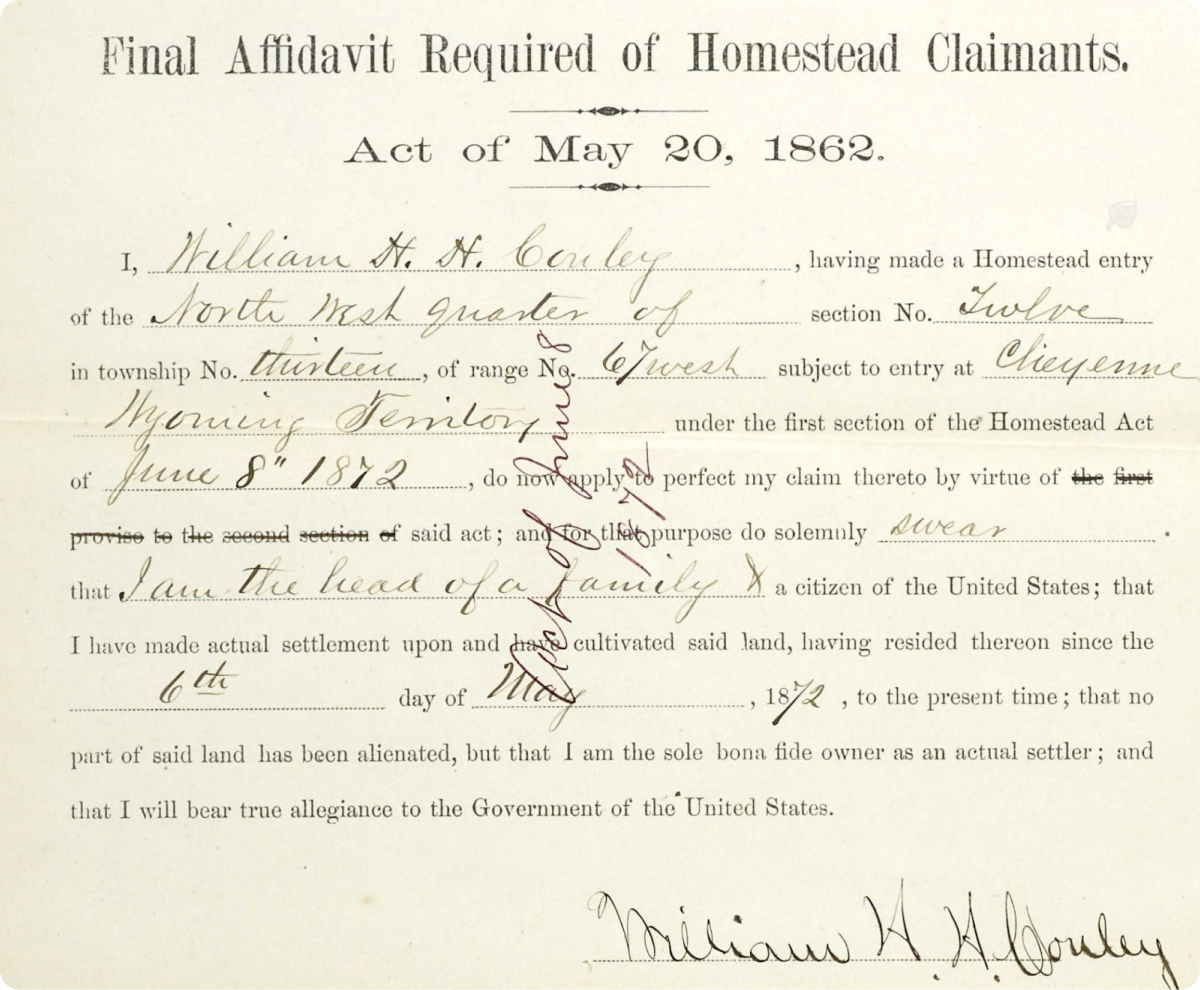 Final Affidavit Required of Homestead Claimants.
Act of May 20, 1862.
I, William H. H. Conley, having made a Homestead entry
of the North West quarter of section No. Twelve
in township No. thirteen, of range No. 67 west subject to entry at Cheyenne
Wyoming Territory under the first section of the Homestead Act
of June 8" 1872, do now apply to perfect my claim thereto by virtue of the first
proviso to the second section of said act; and for that purpose do solemnly swear.
that I am the head of a family & a citizen of the United States; that
I have made actual settlement upon and have cultivated said land, having resided thereon since the
6th day of May, 1872, to the present time; that no
part of said land has been alienated, but that I am the sole bona fide owner as an actual settler; and
that I will bear true allegiance to the Government of the United States.
Act of June 8
1872
William H. H. Conley